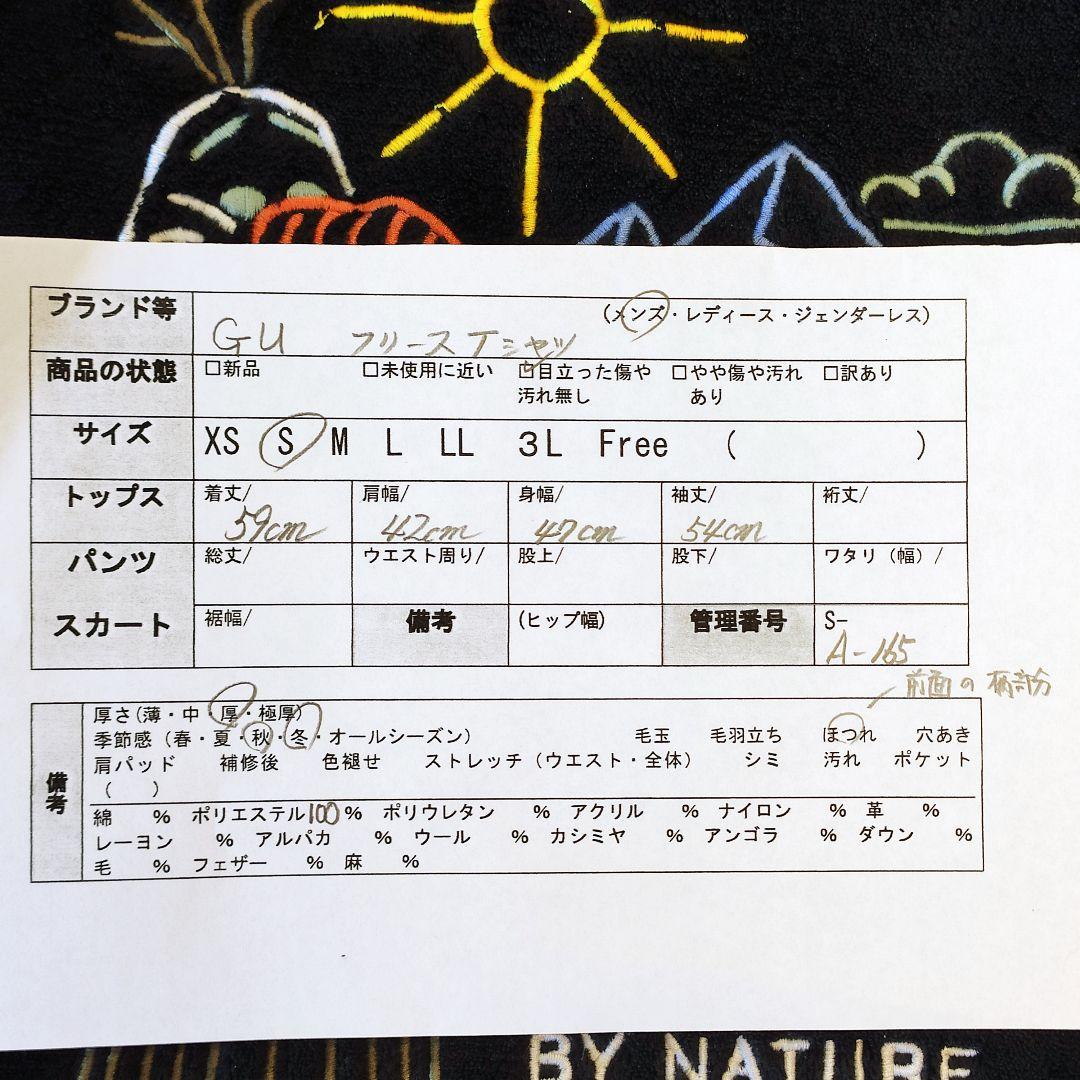 ブランド等
(メンズ・レディース・ジェンダーレス)
GU フリースTシャツ
商品の状態
□新品 □未使用に近い ☑目立った傷や汚れ無し □やや傷や汚れあり □訳あり
サイズ
XS S M L LL 3L Free ( )
トップス
着丈/ 59cm
肩幅/ 42cm
身幅/ 47cm
袖丈/ 54cm
裄丈/
パンツ
総丈/ ウエスト周り/ 股上/ 股下/ ワタリ(幅)/
スカート
裾幅/ 備考 (ヒップ幅) 管理番号 S-
A-165
前面の柄部分
備考
厚さ(薄・中・厚・極厚)
季節感(春・夏・秋・冬・オールシーズン) 毛玉 毛羽立ち ほつれ 穴あき
肩パッド 補修後 色褪せ ストレッチ(ウエスト・全体) シミ 汚れ ポケット
( )
綿 % ポリエステル100% ポリウレタン % アクリル % ナイロン % 革 %
レーヨン % アルパカ % ウール % カシミヤ % アンゴラ % ダウン %
毛 % フェザー % 麻 %
BY NATURE